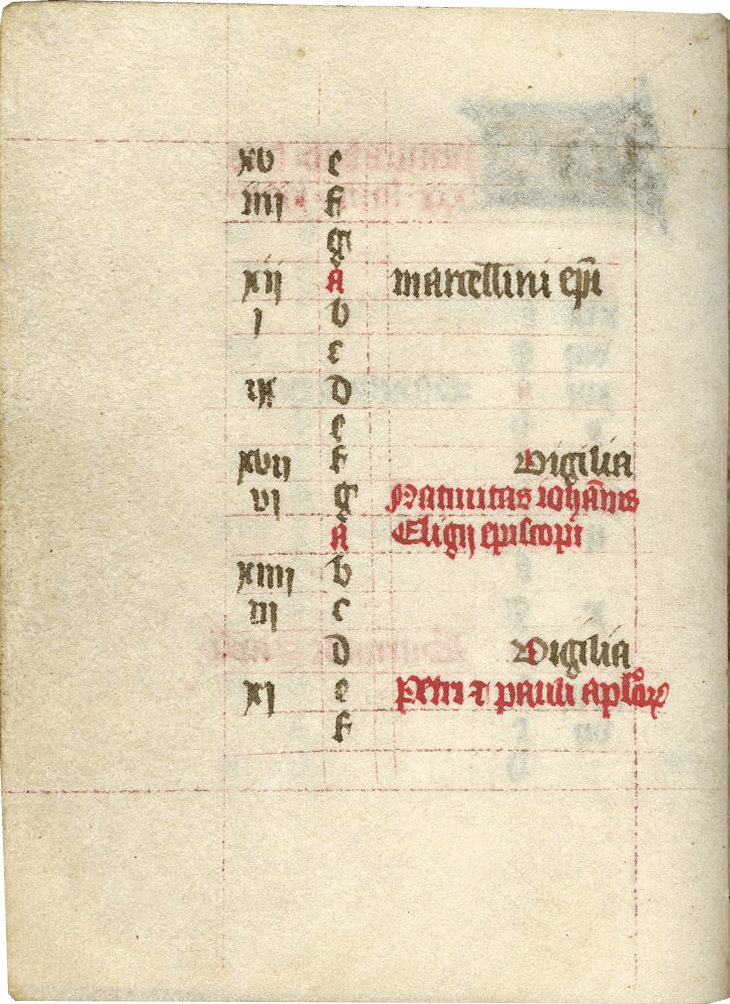 xv e
iiij f
g
xij A marcellini epi
j b
c
ix d
e
xvij f vigilia
vj g Natiuitas ioh̄anis
A Eligij episcopi
xiiij b
iij c
d vigilia
xj e Petri ⁊ pauli aplo̊ꝝ
f